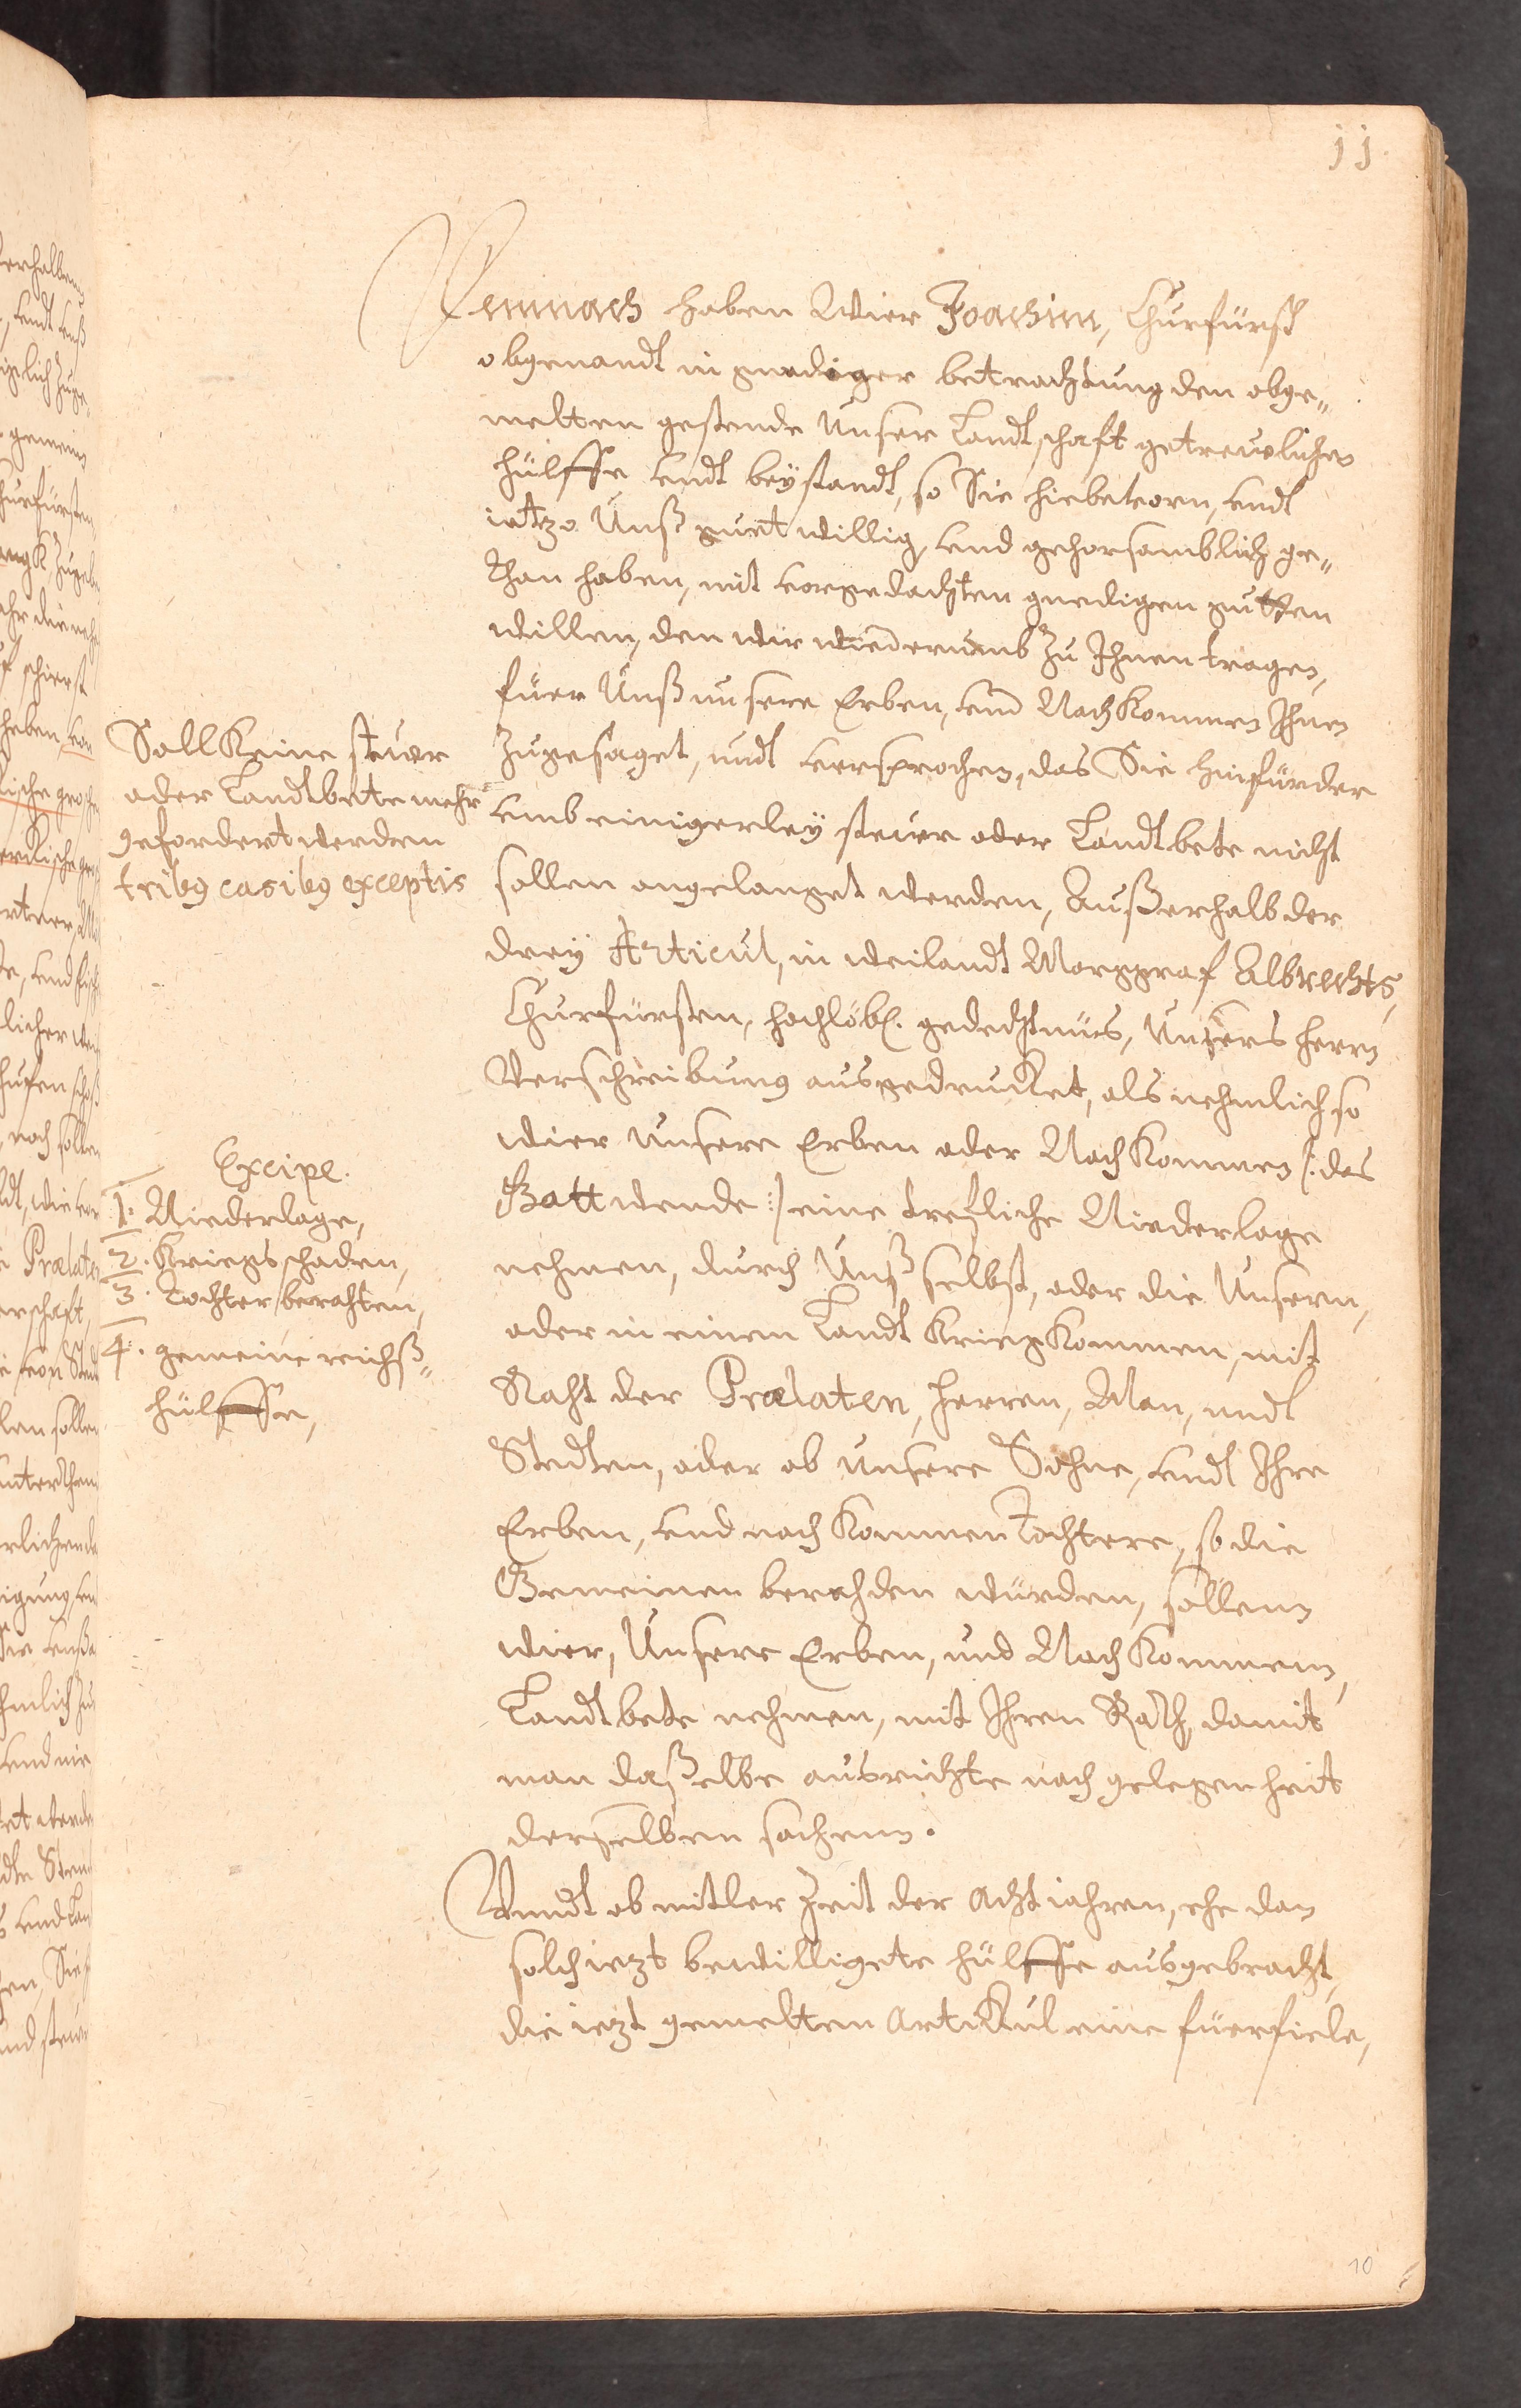 jj.
Demnach haben Wier Joachim, Churfürst
obgenandt in gnediger betrachtung den obge„
melten gestende Unser Landtschaft getreulicher
hülffe undt beystandt, so Sie hiebevorn, undt
ietzo Unß guetwillig, und gehorsamblich ge„
than haben, mit vorgedachten gnedigen gutten
willen, den wir wiederumb zu Ihnen tragen,
fuer Unß unsere Erben, und Nachkommen Ihnen
zugesaget, undt versprochen, das Sie hinfürder
umb einigerley steuer oder Landtbete nicht
sollen angelanget werden, Außerhalb der
drey Articul, in weilandt Marggraf Albrechts,
Churfürsten, hochlöbl. gedechtnüs, Unsers herrn
Verschreibung ausgedrucket, als nehmlich so
wier unsere Erben oder Nachkommen /: das
Gott wende :/ eine trefliche Niederlage
nehmen, durch Unß selbst, oder die Unsern,
oder in einem Landt Krieg kommen, mit
Raht der Prælaten, herren, Man, undt
Stedten, oder ob unsere Sohne, undt Ihre
Erben, und nachkommen Tochtere, so die
Gemeinen berahden würden, sollenn
wier, Unsere Erben, und Nachkommenn,
Landtbete nehmen, mit Ihren Rath, damit
man daßelbe ausrichte nach gelegenheit
derselben sachenn.
Vnndt ob mitler Zeit der Acht iahren, ehe dan
solch iezt bewilligete hülffe ausgebracht,
die iezt gemelten Artickul eine fuerfiele,
Soll Keine steuer
oder Landtbete mehr
gefordert werden
tribq casibq exceptis
Excipe.
1. Niederlage,
2. Kriegs schaden,
3. Tochter berahten,
4. gemeine reichß„
hülffe,
10